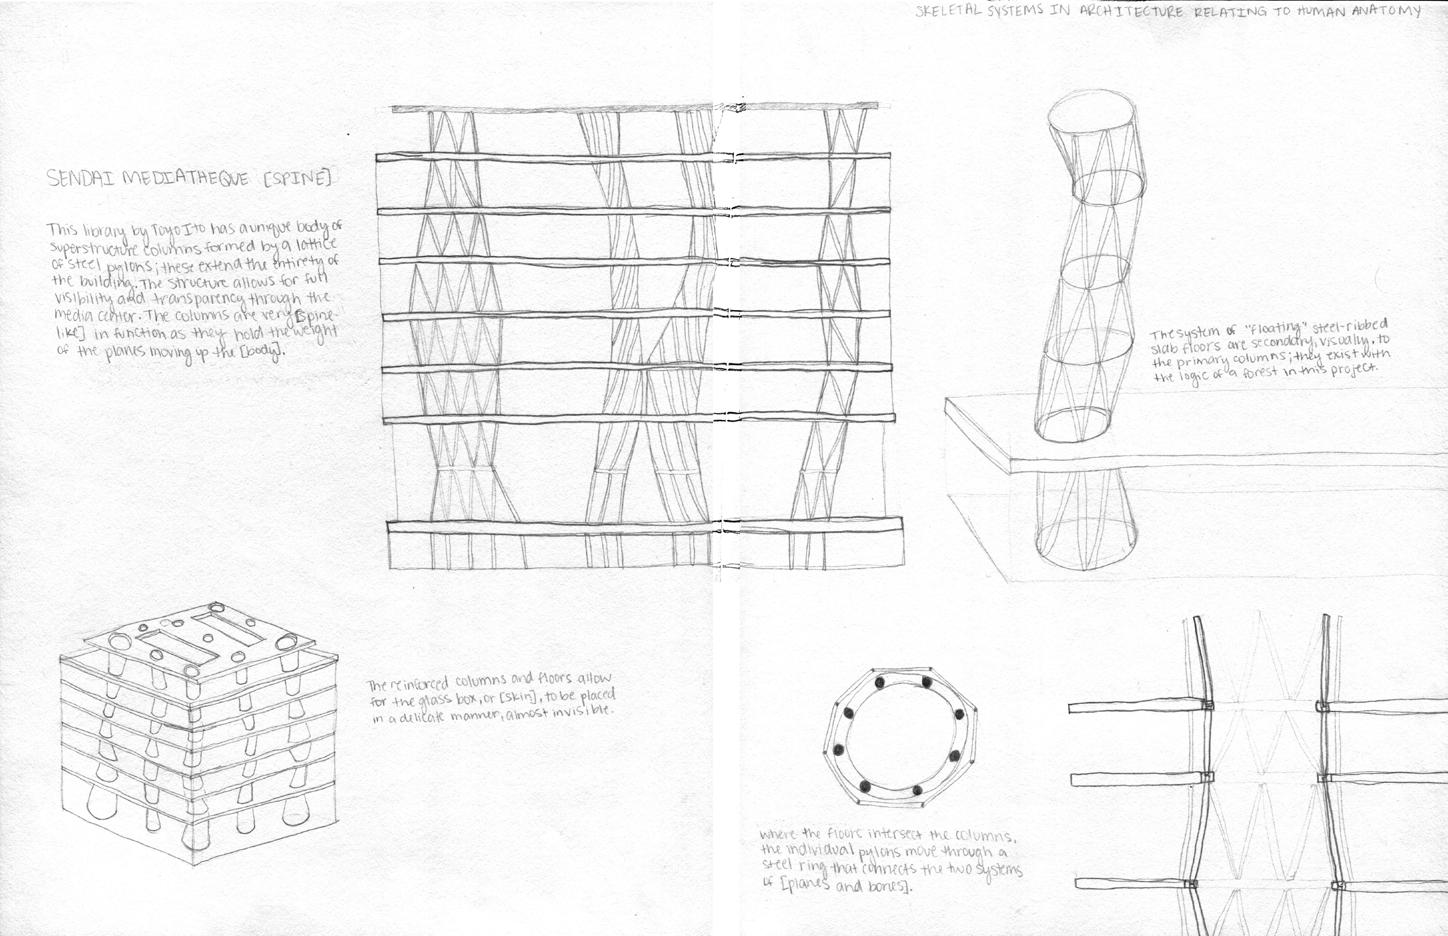 SKELETAL SYSTEMS IN ARCHITECTURE RELATING TO HUMAN ANATOMY
SENDAI MEDIATHEQUE [SPINE]
This library by Toyo Ito has a unique body of
superstructure columns formed by a lattice
of steel pylons; these extend the entirety of
the building. The structure allows for full
visibility and transparency through the
media center. The columns are very [spine-
like] in function as they hold the weight
of the planes moving up the [body].
The system of "floating" steel-ribbed
slab floors are secondary, visually, to
the primary columns; they exist with
the logic of a forest in this project.
The reinforced columns and floors allow
for the glass box, or [skin], to be placed
in a delicate manner, almost invisible.
where the floors intersect the columns,
the individual pylons move through a
steel ring that connects the two systems
of [planes and bones].